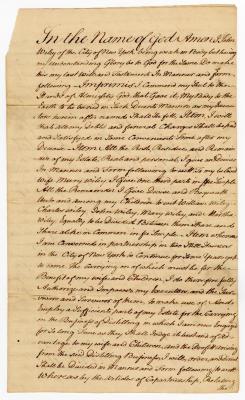 In the Name of God Amen I John
Wiley of the City of New York being weak in Body but having
my understanding Glory be to God for the same Do make
this my last Will and Testament In Manner and form
following — Imprimis I Commend my Soul to the
Hands of Almighty God that Gave it, My Body to the
Earth to be buried in such Decent Manner as my Execu-
tors herein after named Shall think fit. Item I will
that all my Debts and funeral Charges shall be paid
and Satisfied in Some Convenient Time after my
Decease. Item All the Rest, Residue and Remain
der of my Estate, Real and personal, I give and Devise
In Manner and Form following to wit To my beloved
Wife Mary Wiley I give one third part in fee simple
All the Remainder I Give Devise and Bequeath
Unto and among my Children to wit William Wiley
Charles Wiley John Wiley Mary Wiley and
Wiley Equally to be Divided Between them Share and
Share alike in Common in fee simple. Item whereas
I am Concerned in partnership in two Still Houses
in the City of New York to Continue for some Years yet
to come the Carrying on of which must be for the
Benefit of my wife and Children, I do therefore fully
Authorize and Impower my Executors and the Survi-
vors and Survivor of them, to make use of And
Employ a Sufficient part of my Estate for the Carrying
on the Business of Distilling in which I am now Engaged
for So Long Time as they Shall Judge it to be of Ad-
vantage to my wife and Children, and the Profit arising
from the said Distilling Business I will, order, and devise
Shall be Divided in Manner and Form following, to wit
Whereas by the Articles of Copartnership, Relating
the